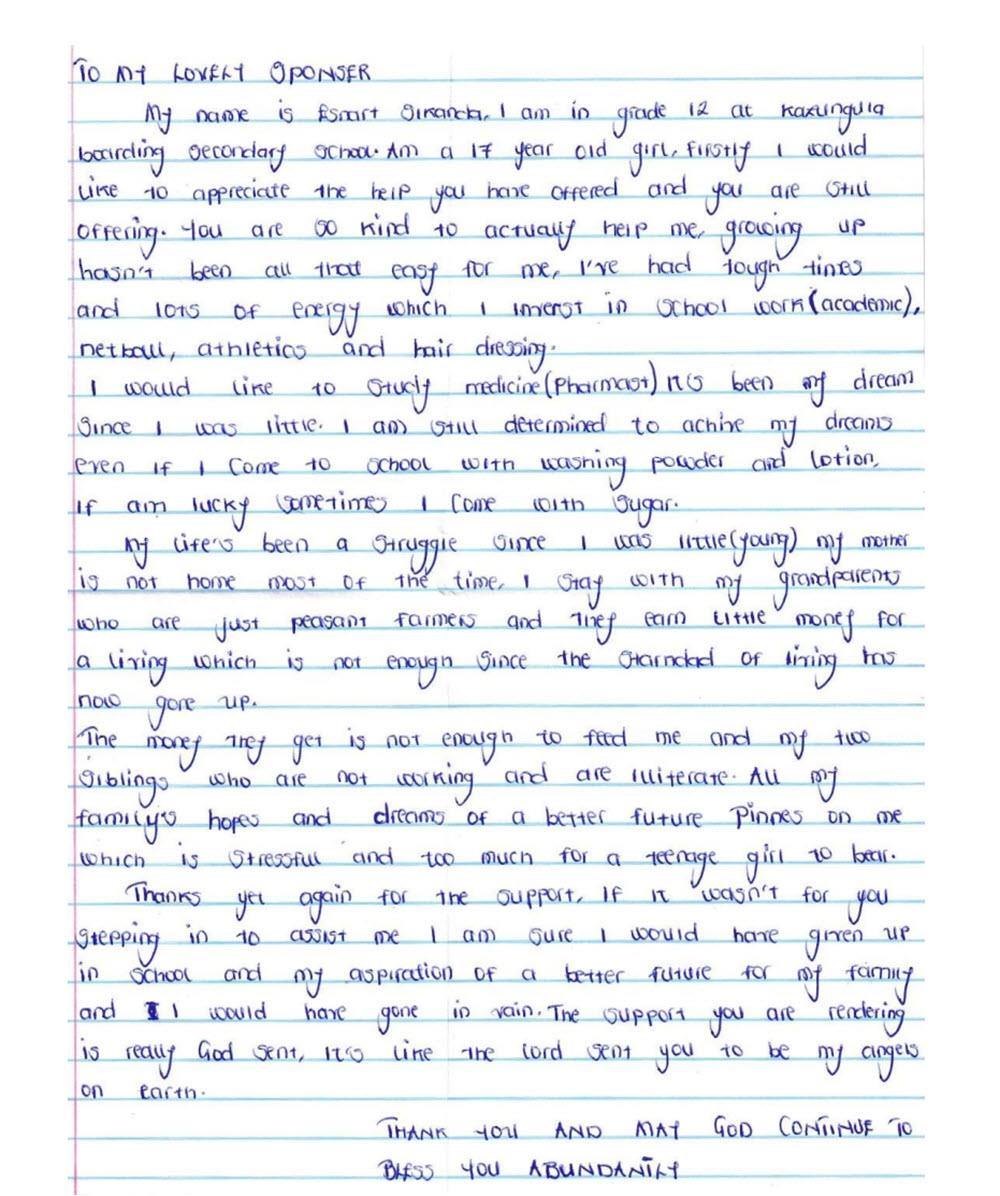 TO MY LOVELY SPONSER
My name is Esnart Sikanda, I am in grade 12 at Kazungula
boarding secondary school. Am a 17 year old girl, firstly I would
like to appreciate the help you have offered and you are still
offering. You are so kind to actually help me, growing up
hasn't been all that easy for me, I've had tough times
and lots of energy which I inverst in school work (academic),
netball, athletics and hair dressing.
I would like to study medicine (Pharmast) It's been my dream
since I was little. I am still determined to achive my dreams
even if I come to school with washing powder and lotion,
if am lucky sometimes I come with sugar.
My life's been a struggle since I was little (young) my mother
is not home most of the time, I stay with my grandparents
who are just peasant farmers and they earn little money for
a living which is not enough since the starndad of living has
now gone up.
The money they get is not enough to feed me and my two
siblings who are not working and are illiterate. All my
family's hopes and dreams of a better future pinnes on me
which is stressful and too much for a teenage girl to bear.
Thanks yet again for the support, If it wasn't for you
stepping in to assist me I am sure I would have given up
in school and my aspiration of a better future for my family
and I would have gone in vain. The support you are rendering
is really God sent, It's like the lord sent you to be my angels
on earth.
THANK YOU AND MAY GOD CONTINUE TO
BLESS YOU ABUNDANTLY